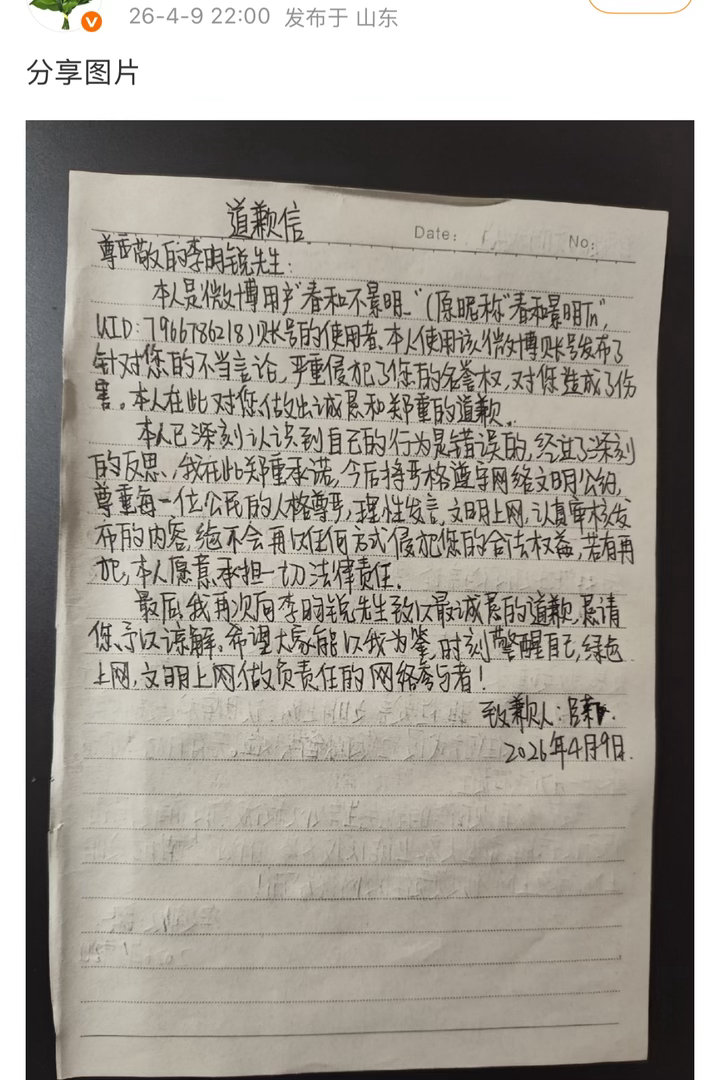 26-4-9 22:00 发布于 山东
分享图片
道歉信
Date:
No:
尊敬的李昀锐先生：
本人是微博用户“春和不景明_”（原昵称“春和景明Tn”，
UID：7966786218）账号的使用者，本人使用该微博账号发布了
针对您的不当言论，严重侵犯了您的名誉权，对您造成了伤
害。本人在此对您做出诚恳和郑重的道歉。
本人已深刻认识到自己的行为是错误的，经过了深刻
的反思，我在此郑重承诺，今后将严格遵守网络文明公约，
尊重每一位公民的人格尊严，理性发言，文明上网，认真审核发
布的内容，绝不会再以任何方式侵犯您的合法权益，若有再
犯，本人愿意承担一切法律责任。
最后我再次向李昀锐先生致以最诚恳的道歉，恳请
您予以谅解。希望大家能以我为鉴，时刻警醒自己，绿色
上网，文明上网，做负责任的网络参与者！
致歉人：
2026年4月9日.